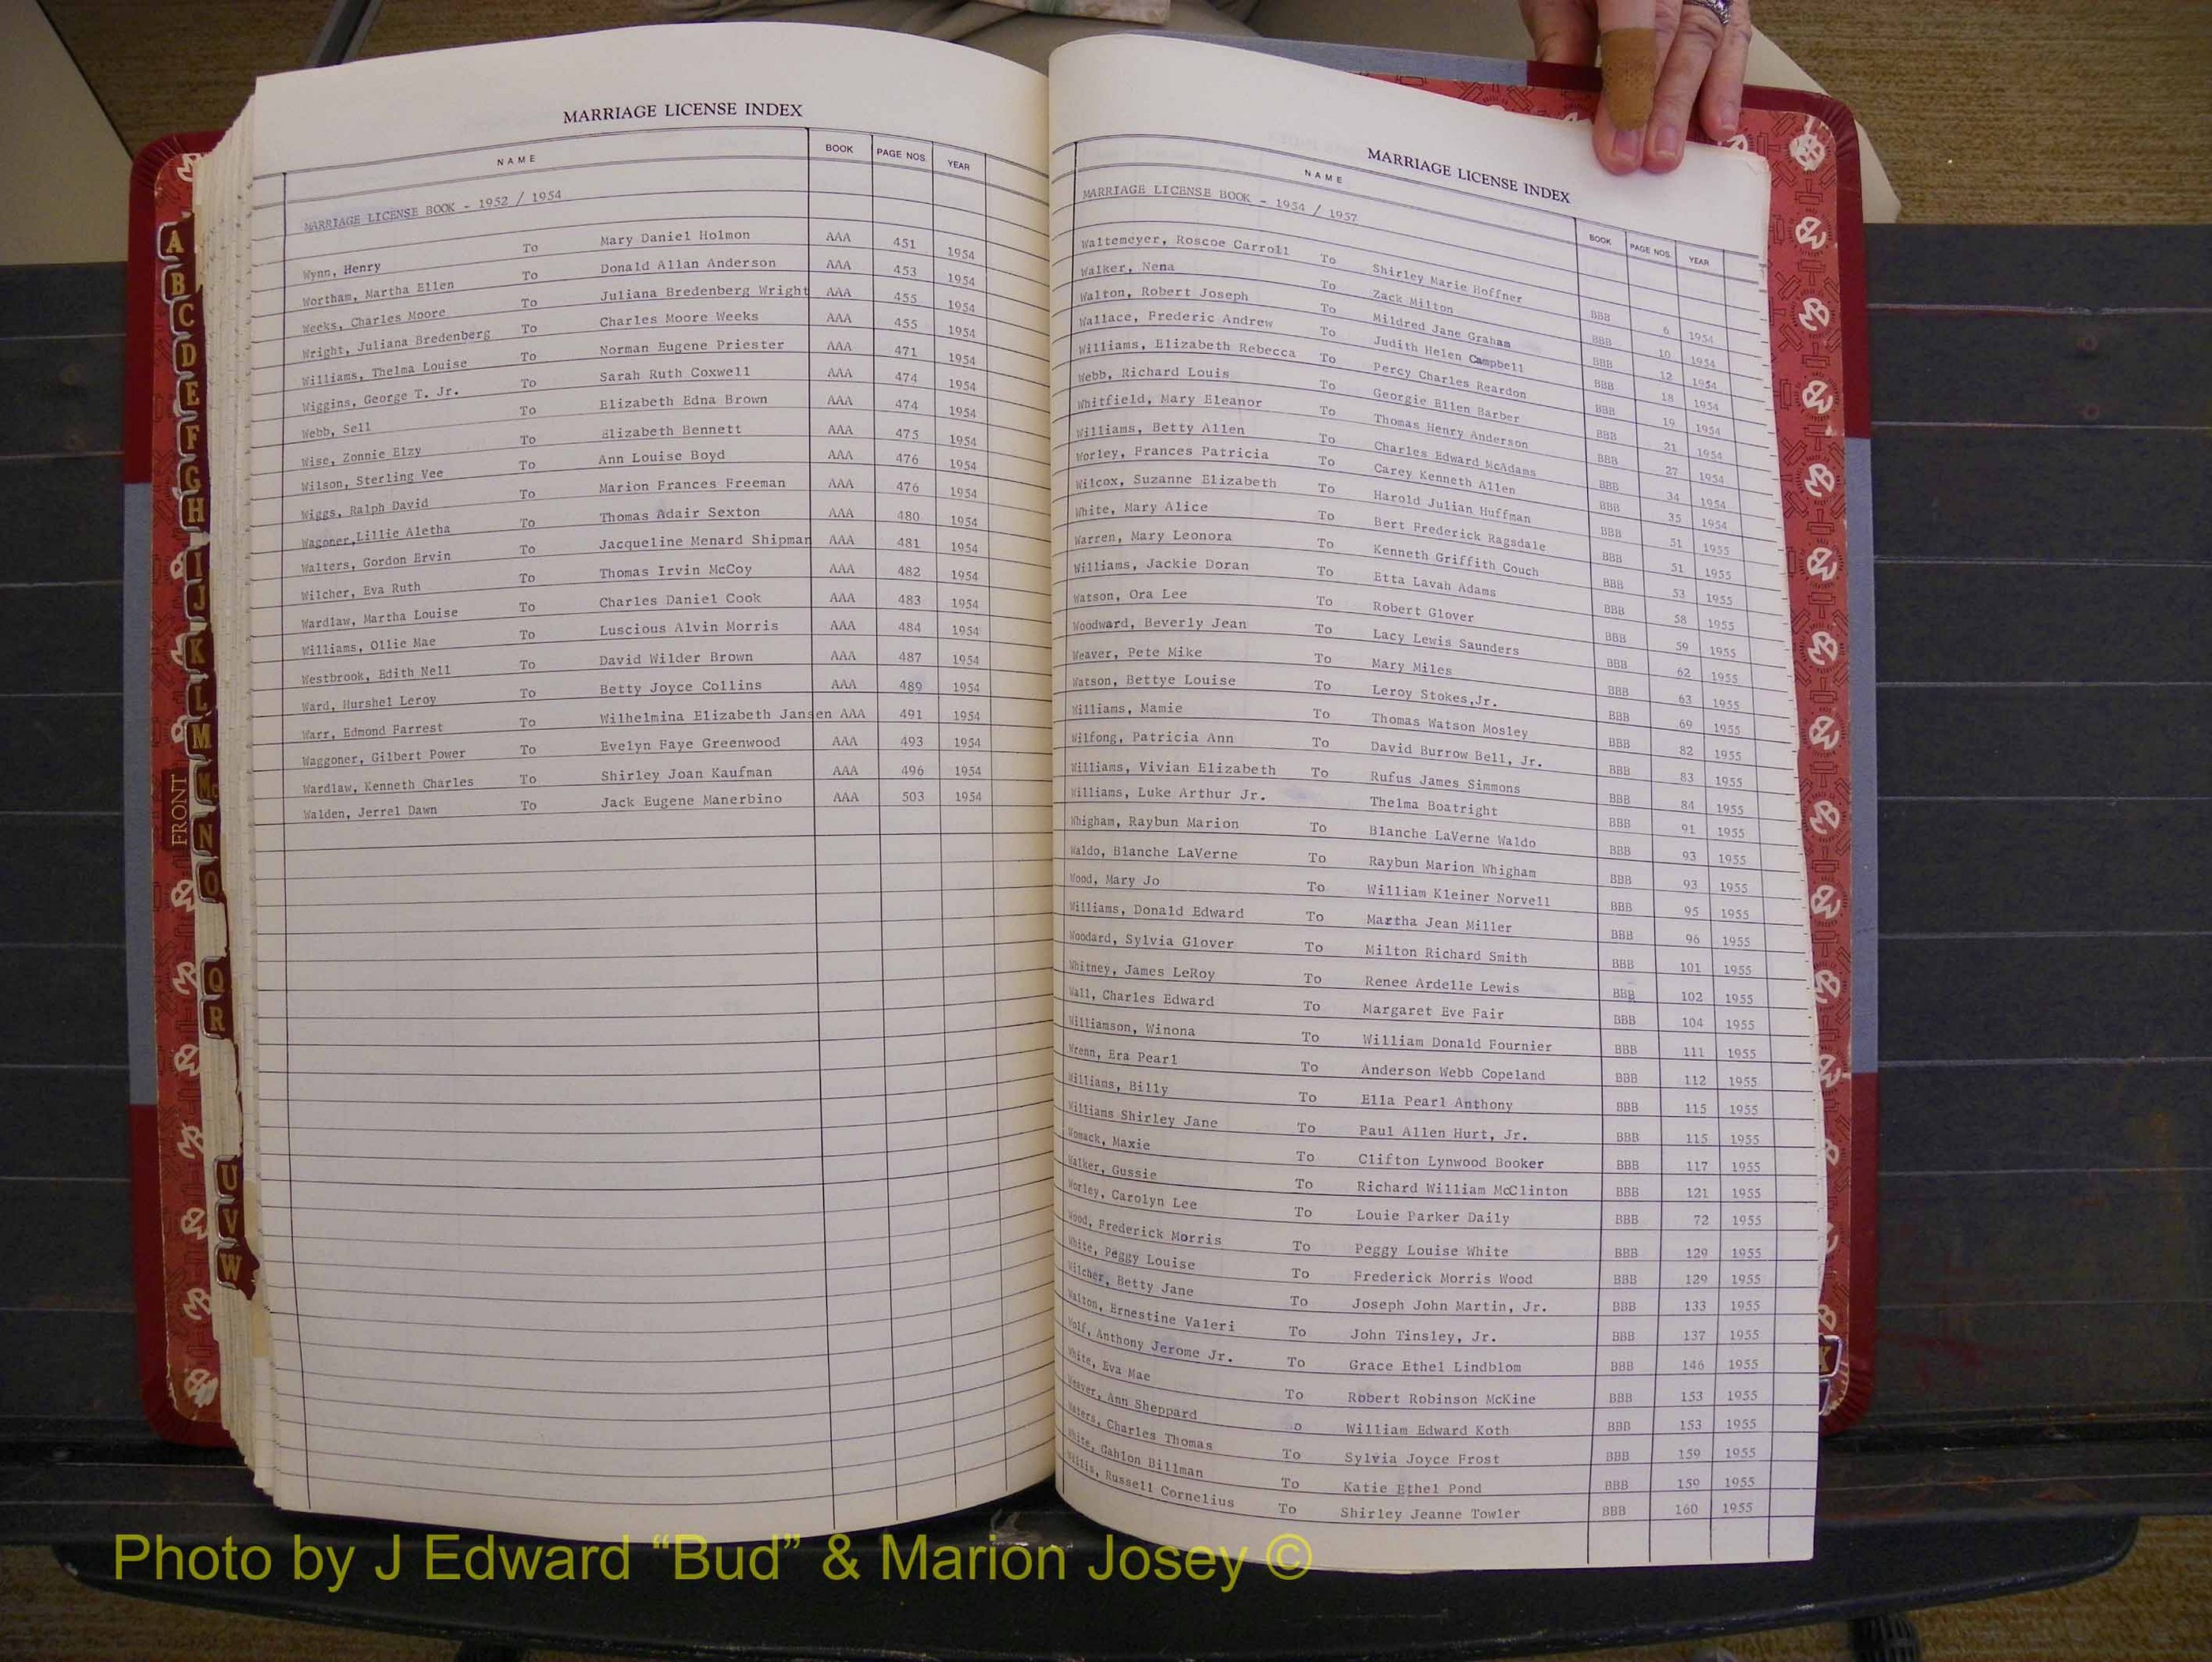 MARRIAGE LICENSE INDEX
NAME BOOK PAGE NOS. YEAR
MARRIAGE LICENSE BOOK - 1952 / 1954
Wynn, Henry To Mary Daniel Holmon AAA 451 1954
Wortham, Martha Ellen To Donald Allan Anderson AAA 453 1954
Weeks, Charles Moore To Juliana Bredenberg Wright AAA 455 1954
Wright, Juliana Bredenberg To Charles Moore Weeks AAA 455 1954
Williams, Thelma Louise To Norman Eugene Priester AAA 471 1954
Wiggins, George T. Jr. To Sarah Ruth Coxwell AAA 474 1954
Webb, Sell To Elizabeth Edna Brown AAA 474 1954
Wise, Zonnie Elzy To Elizabeth Bennett AAA 475 1954
Wilson, Sterling Vee To Ann Louise Boyd AAA 476 1954
Wiggs, Ralph David To Marion Frances Freeman AAA 476 1954
Wagoner, Lillie Aletha To Thomas Adair Sexton AAA 480 1954
Walters, Gordon Ervin To Jacqueline Menard Shipman AAA 481 1954
Wilcher, Eva Ruth To Thomas Irvin McCoy AAA 482 1954
Wardlaw, Martha Louise To Charles Daniel Cook AAA 483 1954
Williams, Ollie Mae To Luscious Alvin Morris AAA 484 1954
Westbrook, Edith Nell To David Wilder Brown AAA 487 1954
Ward, Hurshel Leroy To Betty Joyce Collins AAA 489 1954
Warr, Edmond Farrest To Wilhelmina Elizabeth Jansen AAA 491 1954
Waggoner, Gilbert Power To Evelyn Faye Greenwood AAA 493 1954
Wardlaw, Kenneth Charles To Shirley Joan Kaufman AAA 496 1954
Walden, Jerrel Dawn To Jack Eugene Manerbino AAA 503 1954
MARRIAGE LICENSE INDEX
NAME BOOK PAGE NOS. YEAR
MARRIAGE LICENSE BOOK - 1954 / 1957
Waltemeyer, Roscoe Carroll To Shirley Marie Hoffner BBB 6 1954
Walker, Nena To Zack Milton BBB 10 1954
Walton, Robert Joseph To Mildred Jane Graham BBB 12 1954
Wallace, Frederic Andrew To Judith Helen Campbell BBB 18 1954
Williams, Elizabeth Rebecca To Percy Charles Reardon BBB 19 1954
Webb, Richard Louis To Georgie Ellen Barber BBB 21 1954
Whitfield, Mary Eleanor To Thomas Henry Anderson BBB 27 1954
Williams, Betty Allen To Charles Edward McAdams BBB 34 1954
Worley, Frances Patricia To Carey Kenneth Allen BBB 35 1954
Wilcox, Suzanne Elizabeth To Harold Julian Huffman BBB 51 1955
White, Mary Alice To Bert Frederick Ragsdale BBB 51 1955
Warren, Mary Leonora To Kenneth Griffith Couch BBB 53 1955
Williams, Jackie Doran To Etta Lavah Adams BBB 58 1955
Watson, Ora Lee To Robert Glover BBB 59 1955
Woodward, Beverly Jean To Lacy Lewis Saunders BBB 62 1955
Weaver, Pete Mike To Mary Miles BBB 63 1955
Watson, Bettye Louise To Leroy Stokes,Jr. BBB 69 1955
Williams, Mamie To Thomas Watson Mosley BBB 82 1955
Wilfong, Patricia Ann To David Burrow Bell, Jr. BBB 83 1955
Williams, Vivian Elizabeth To Rufus James Simmons BBB 84 1955
Williams, Luke Arthur Jr. Thelma Boatright BBB 91 1955
Whigham, Raybun Marion To Blanche LaVerne Waldo BBB 93 1955
Waldo, Blanche LaVerne To Raybun Marion Whigham BBB 93 1955
Wood, Mary Jo To William Kleiner Norvell BBB 95 1955
Williams, Donald Edward To Martha Jean Miller BBB 96 1955
Woodard, Sylvia Glover To Milton Richard Smith BBB 101 1955
Whitney, James LeRoy To Renee Ardelle Lewis BBB 102 1955
Wall, Charles Edward To Margaret Eve Fair BBB 104 1955
Williamson, Winona To William Donald Fournier BBB 111 1955
Wrenn, Era Pearl To Anderson Webb Copeland BBB 112 1955
Williams, Billy To Ella Pearl Anthony BBB 115 1955
Williams Shirley Jane To Paul Allen Hurt, Jr. BBB 115 1955
Womack, Maxie To Clifton Lynwood Booker BBB 117 1955
Walker, Gussie To Richard William McClinton BBB 121 1955
Worley, Carolyn Lee To Louie Parker Daily BBB 72 1955
Wood, Frederick Morris To Peggy Louise White BBB 129 1955
White, Peggy Louise To Frederick Morris Wood BBB 129 1955
Wilcher, Betty Jane To Joseph John Martin, Jr. BBB 133 1955
Walton, Ernestine Valeri To John Tinsley, Jr. BBB 137 1955
Wolf, Anthony Jerome Jr. To Grace Ethel Lindblom BBB 146 1955
White, Eva Mae To Robert Robinson McKine BBB 153 1955
Weaver, Ann Sheppard o William Edward Koth BBB 153 1955
Waters, Charles Thomas To Sylvia Joyce Frost BBB 159 1955
White, Gahlon Billman To Katie Ethel Pond BBB 159 1955
Willis, Russell Cornelius To Shirley Jeanne Towler BBB 160 1955
A
B
C
D
E
F
G
H
I
J
K
L
M
Mc
N
O
Q
R
U
V
W
FRONT
Photo by J Edward “Bud” & Marion Josey ©